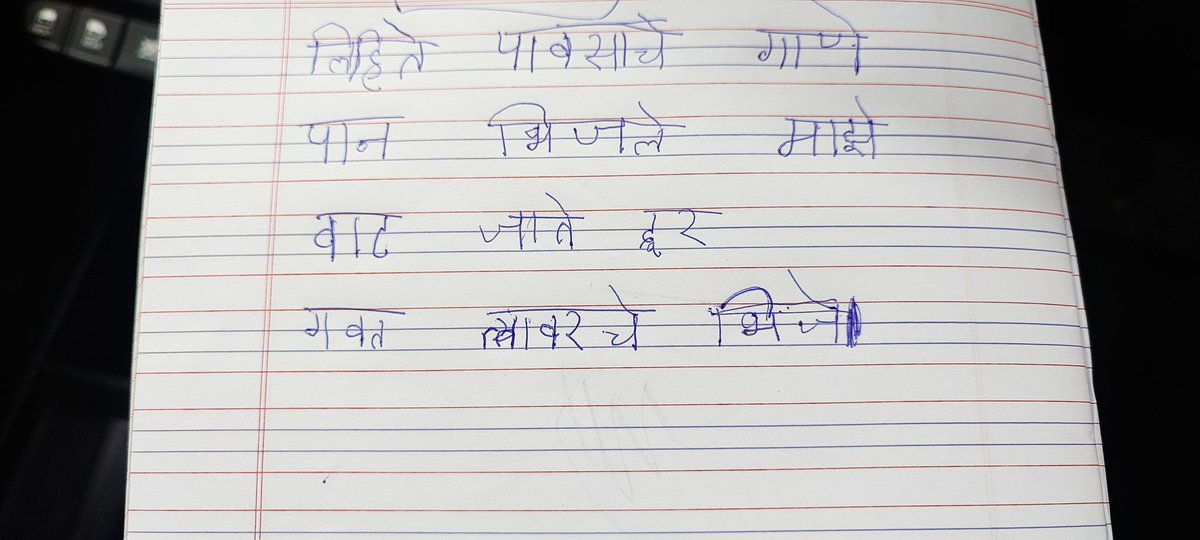 लिहिते पावसाचे गाणे
पान भिजले माझे
वाट जाते दूर
गवत त्यावरचे भिजे